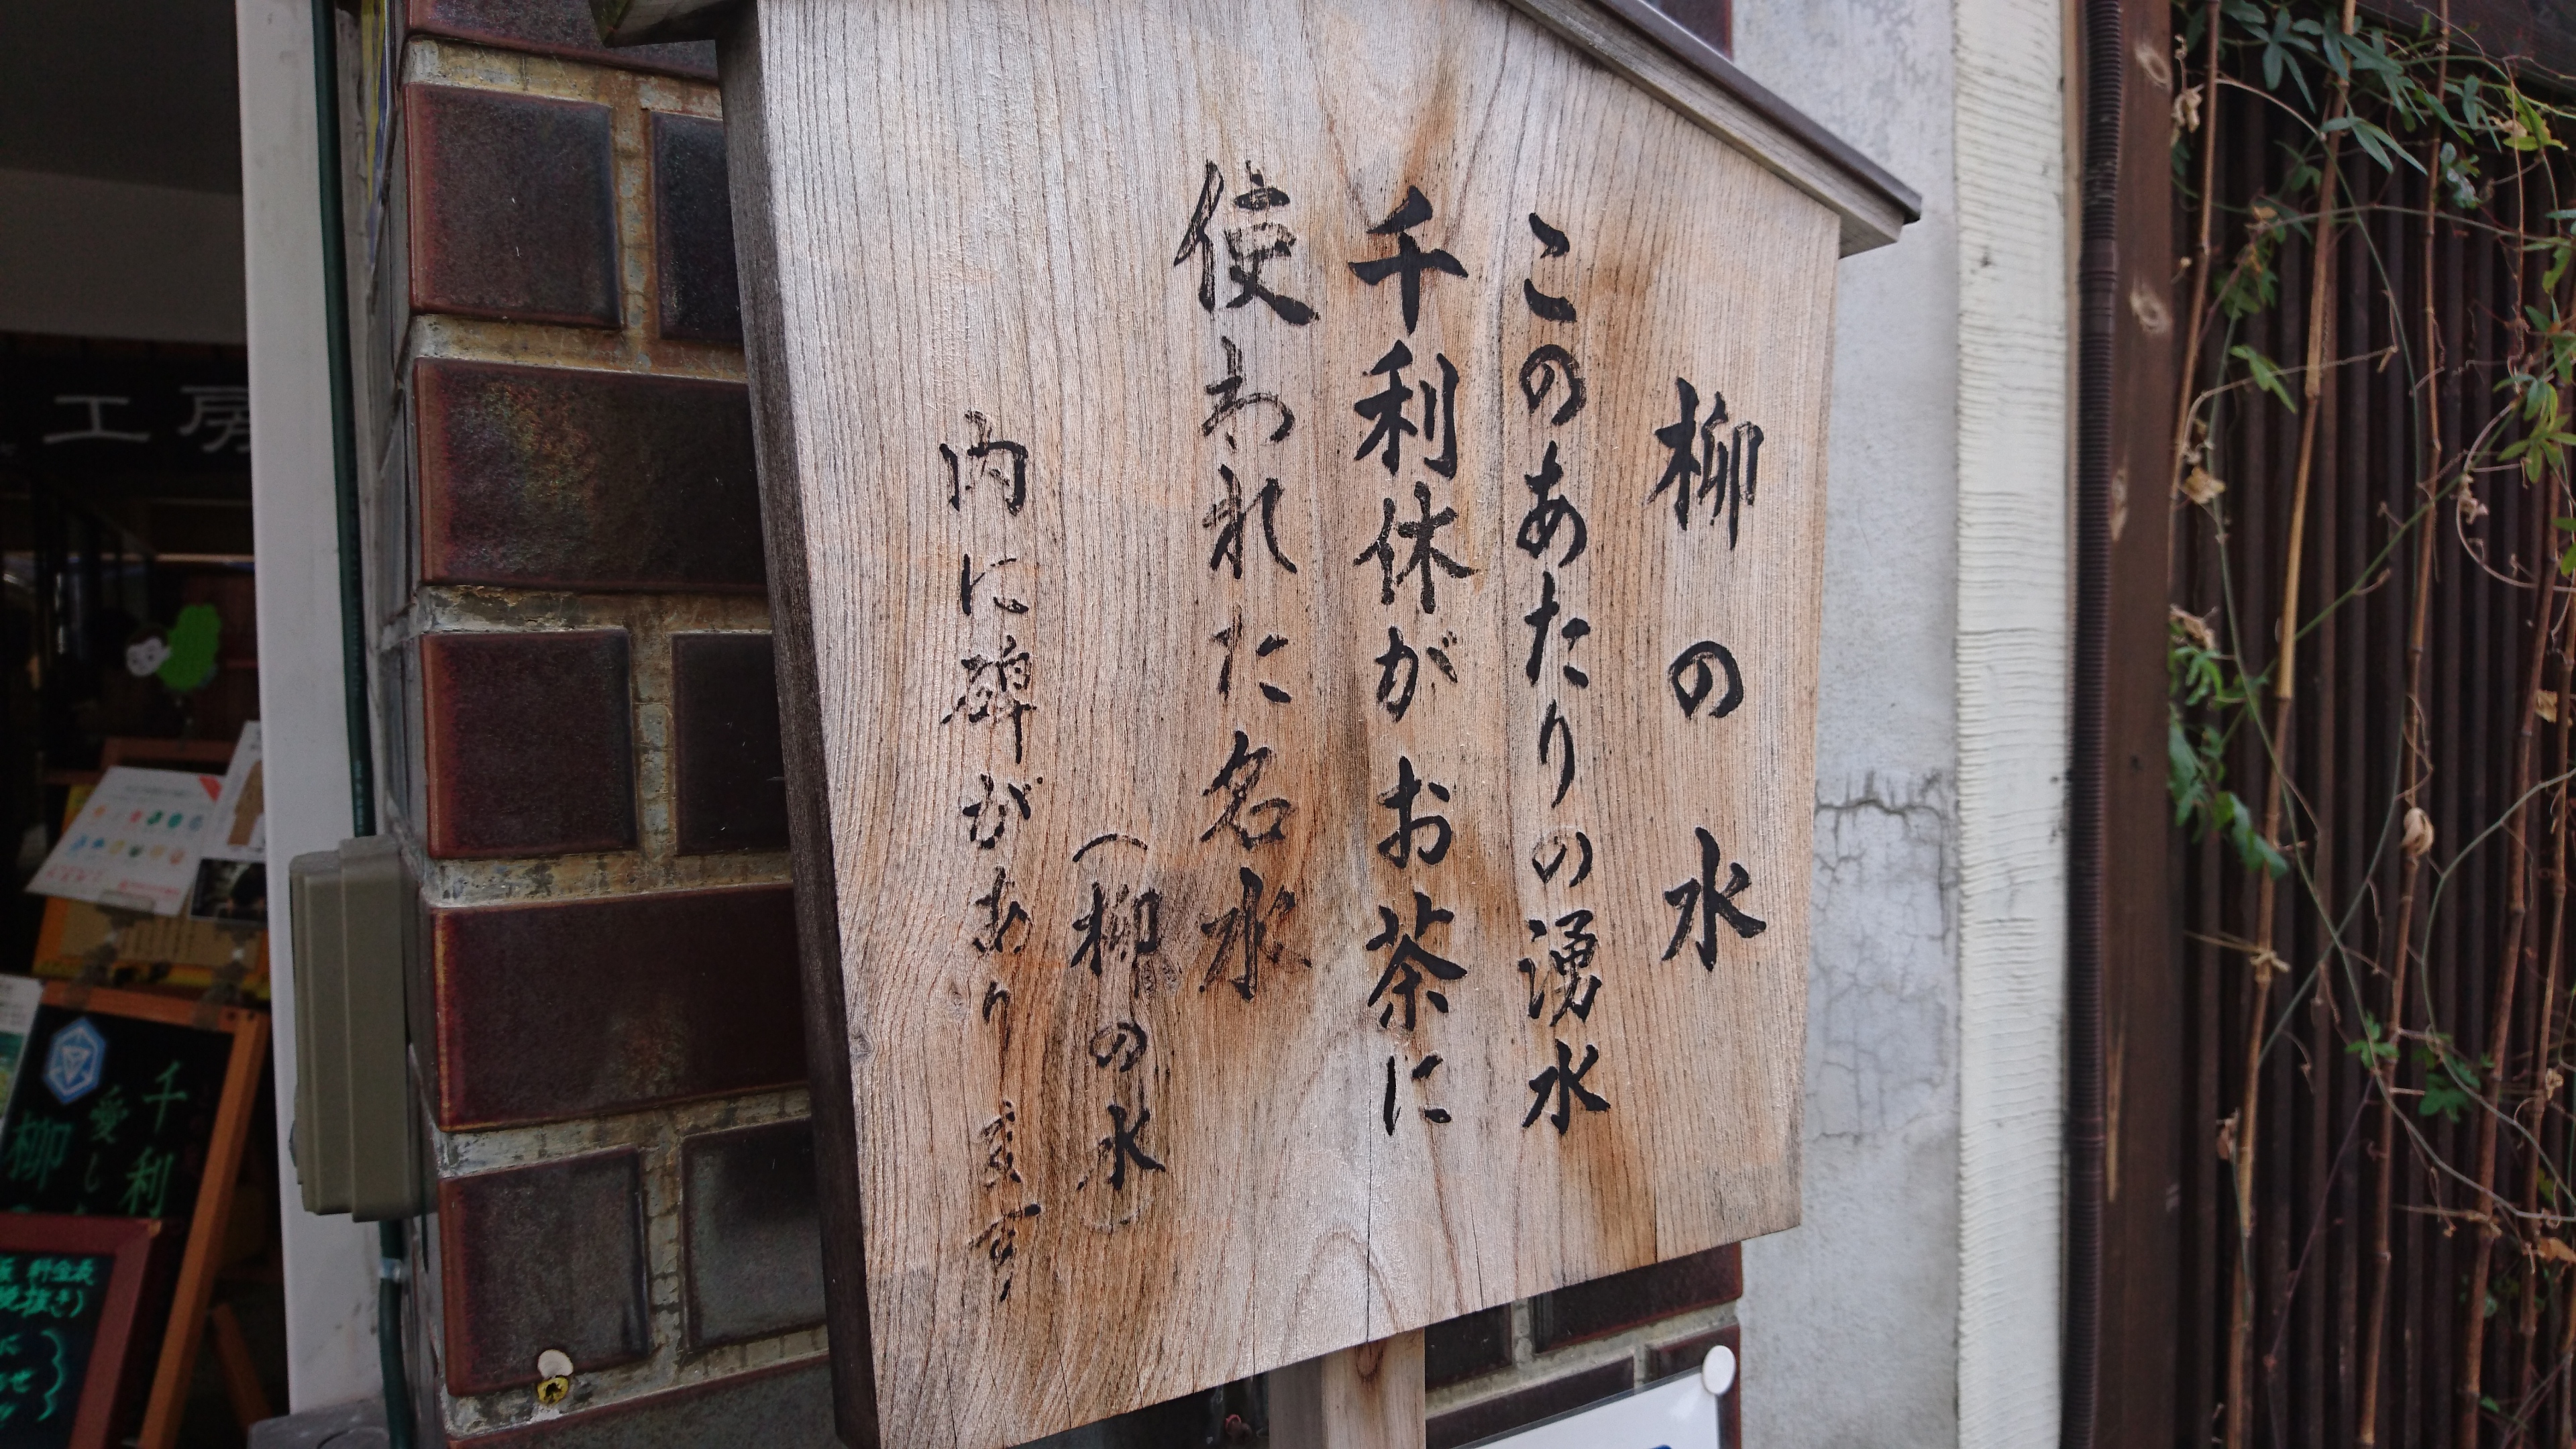 柳の水
このあたりの湧水
千利休がお茶に
使われた名水
(柳の水)
内に碑があり
工房
千利
愛し
柳
料金表
抜き)